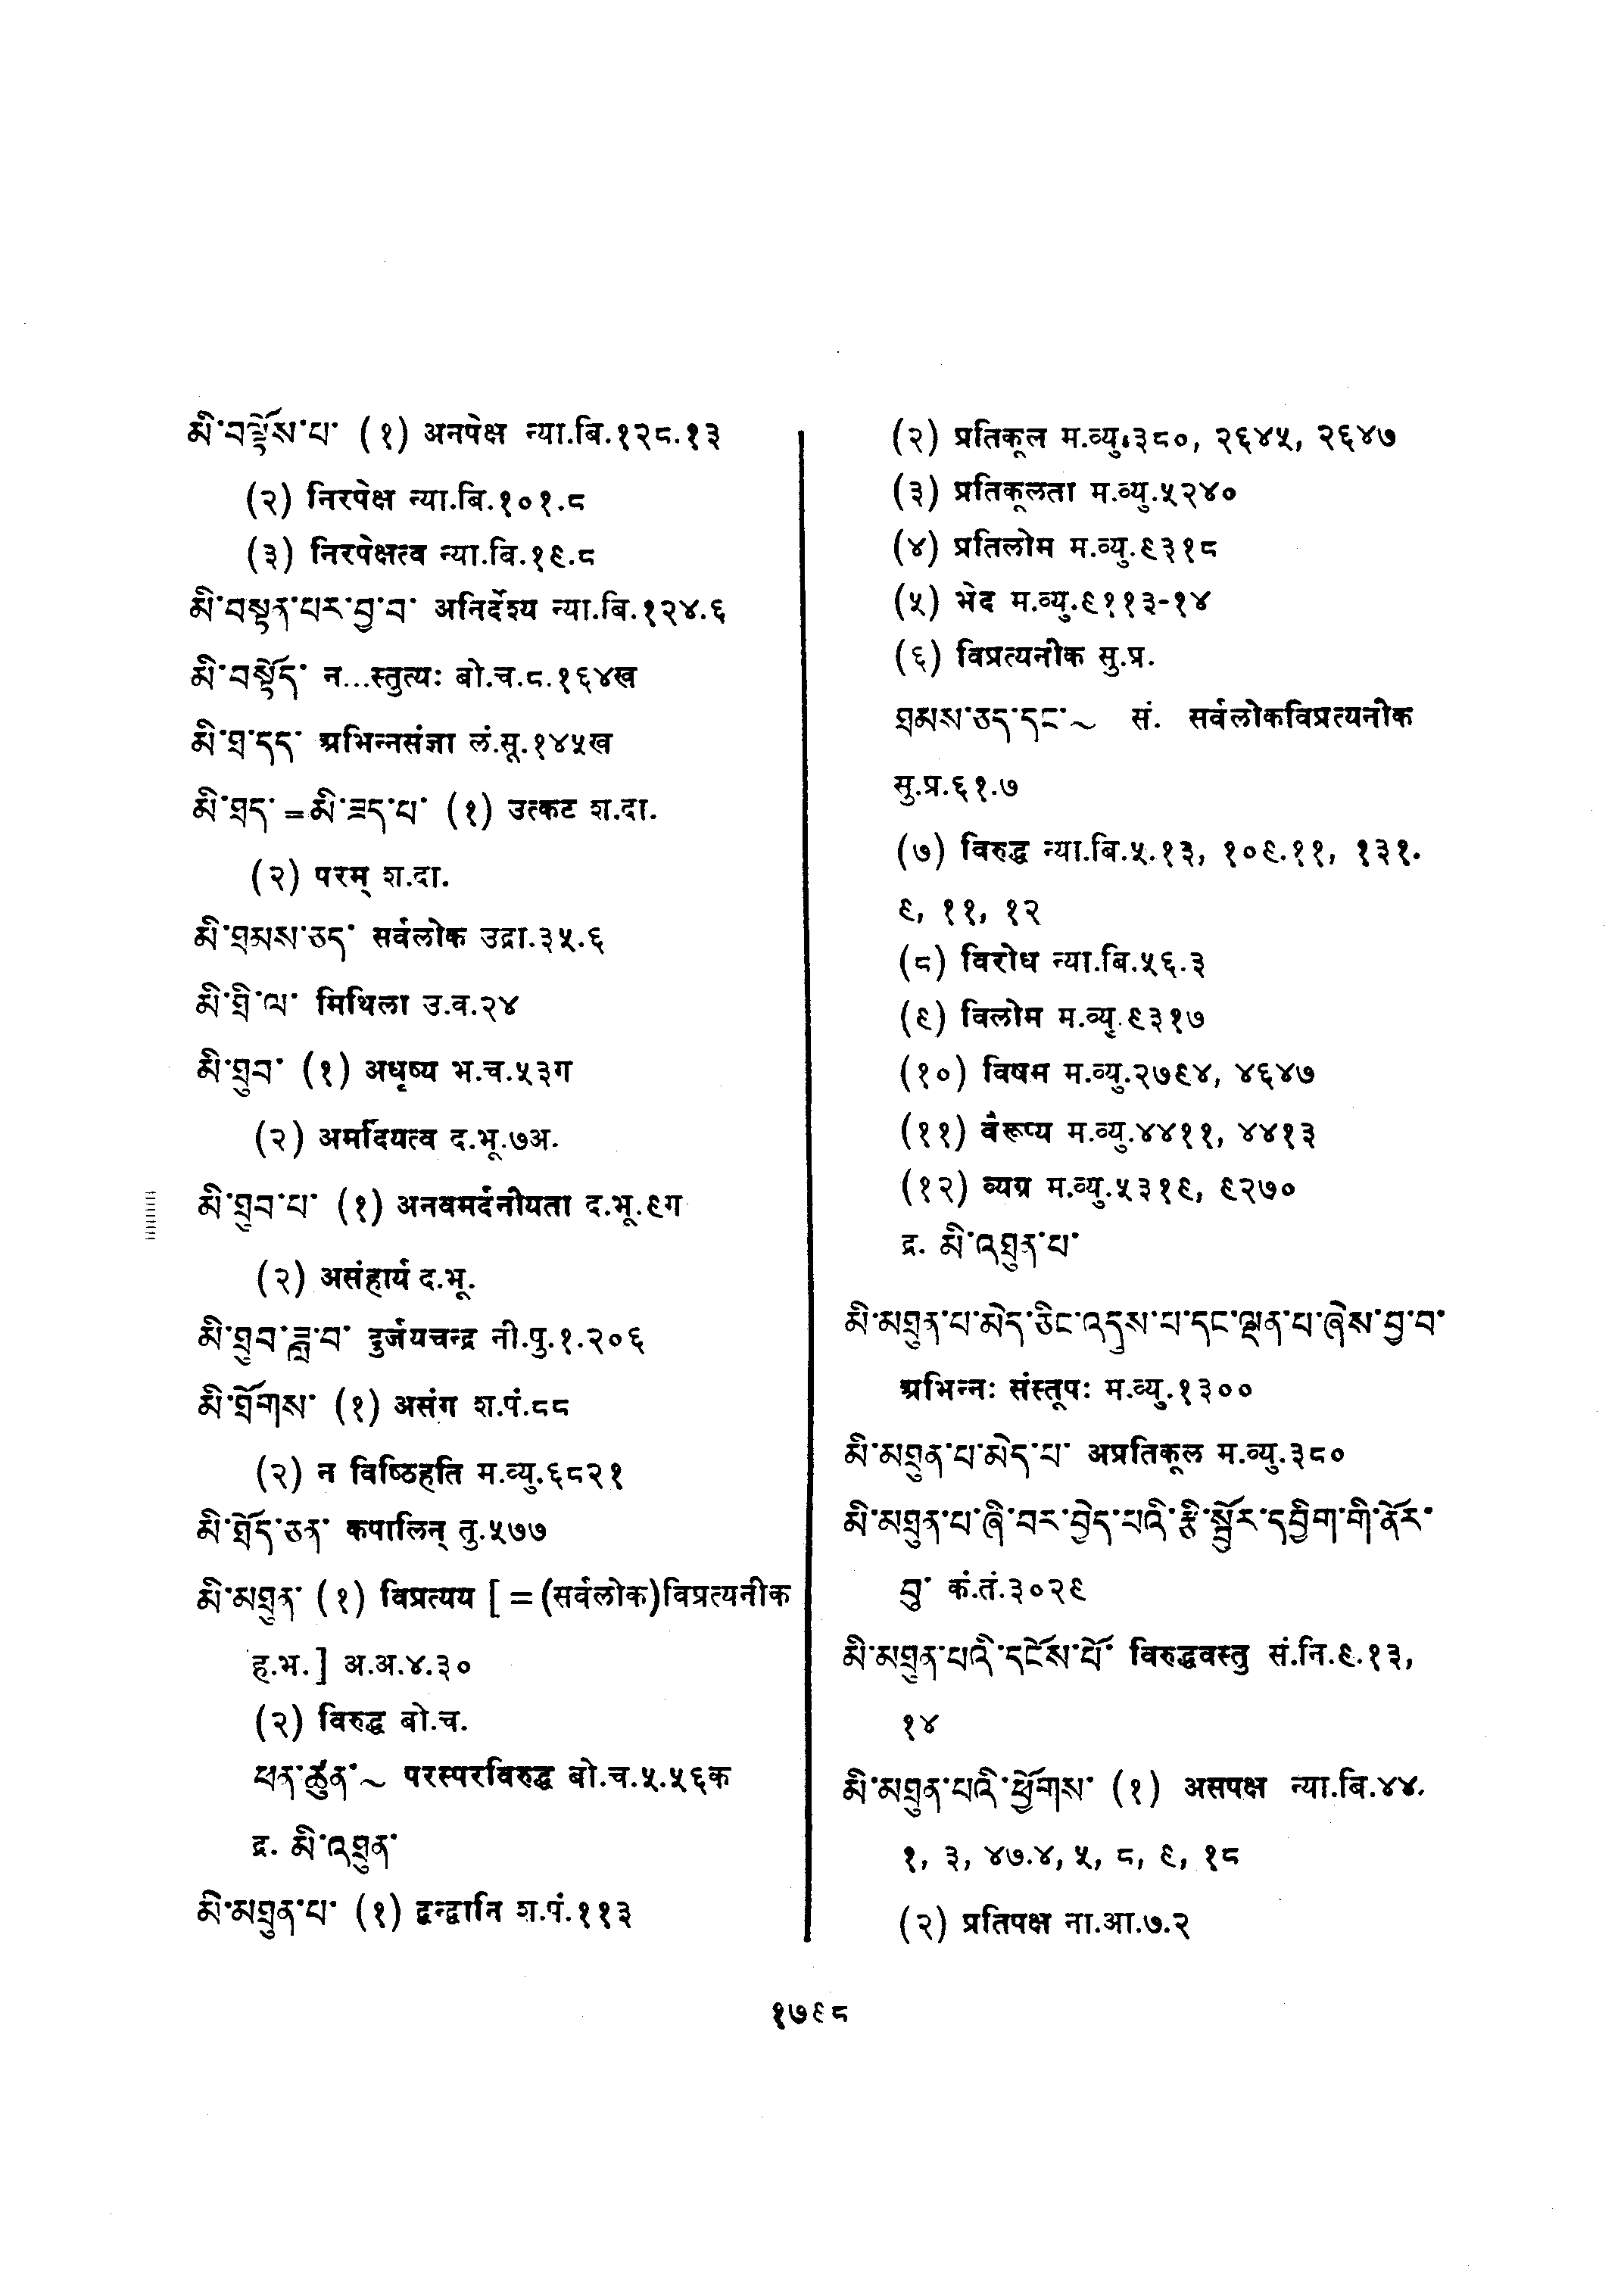 མི་བལྟོས་པ་ (१) अनपेक्ष न्या.बि.१२८.१३
(२) निरपेक्ष न्या.बि.१०१.८
(३) निरपेक्षत्व न्या.बि.१९.८
མི་བསྟན་པར་བྱ་བ་ अनिर्देश्य न्या.बि.१२४.६
མི་བསྟོད་ न...स्तुत्यः बो.च.८.१६४ख
མི་ཐ་དད་ अभिन्नसंज्ञा लं.सू.१४५ख
མི་ཐད་ =མི་ཟད་པ་ (१) उत्कट श.दा.
(२) परम् श.दा.
མི་ཐམས་ཅད་ सर्वलोक उद्रा.३५.६
མི་ཐི་ལ་ मिथिला उ.व.२४
མི་ཐུབ་ (१) अधृष्य भ.च.५३ग
(२) अमर्दियत्व द.भू.७अ.
མི་ཐུབ་པ་ (१) अनवमर्दनीयता द.भू.९ग
(२) असंहार्य द.भू.
མི་ཐུབ་ཟླ་བ་ दुर्जयचन्द्र नी.पु.१.२०६
མི་ཐོགས་ (१) असंग श.पं.८८
(२) न विष्ठिहति म.व्यु.६८२१
མི་ཐོད་ཅན་ कपालिन् तु.५७७
མི་མཐུན་ (१) विप्रत्यय [ =(सर्वलोक)विप्रत्यनीक
ह.भ.] अ.अ.४.३०
(२) विरुद्ध बो.च.
ཕན་ཚུན་~ परस्परविरुद्ध बो.च.५.५६क
द्र. མི་འཐུན་
མི་མཐུན་པ་ (१) द्वन्द्वानि श.पं.११३
(२) प्रतिकूल म.व्यु.३८०, २६४५, २६४७
(३) प्रतिकूलता म.व्यु.५२४०
(४) प्रतिलोम म.व्यु.९३१८
(५) भेद म.व्यु.९११३-१४
(६) विप्रत्यनीक सु.प्र.
ཐམས་ཅད་དང་~ सं. सर्वलोकविप्रत्यनीक
सु.प्र.६१.७
(७) विरुद्ध न्या.बि.५.१३, १०९.११, १३१.
९, ११, १२
(८) विरोध न्या.बि.५६.३
(९) विलोम म.व्यु.९३१७
(१०) विषम म.व्यु.२७९४, ४६४७
(११) वैरूप्य म.व्यु.४४११, ४४१३
(१२) व्यग्र म.व्यु.५३१९, ९२७०
द्र. མི་འཐུན་པ་
མི་མཐུན་པ་མེད་ཅིང་འདུས་པ་དང་ལྡན་པ་ཞེས་བྱ་བ་
अभिन्नः संस्तूपः म.व्यु.१३००
མི་མཐུན་པ་མེད་པ་ अप्रतिकूल म.व्यु.३८०
མི་མཐུན་པ་ཞི་བར་བྱེད་པའི་རྩི་སྦྱོར་དབྱིག་གི་ནོར་
བུ་ कं.तं.३०२९
མི་མཐུན་པའི་དངོས་པོ་ विरुद्धवस्तु सं.नि.९.१३,
१४
མི་མཐུན་པའི་ཕྱོགས་ (१) असपक्ष न्या.बि.४४.
१, ३, ४७.४, ५, ८, ९, १८
(२) प्रतिपक्ष ना.आ.७.२
१७९८